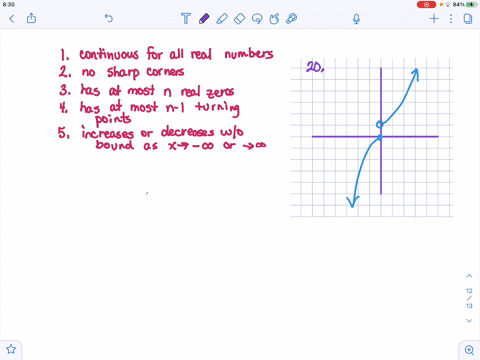 8:30
84%
1. continuous for all real numbers
2. no sharp corners
3. has at most n real zeros
4. has at most n-1 turning
points
5. increases or decreases w/o
bound as x→-∞ or →∞
20.
12
/
13